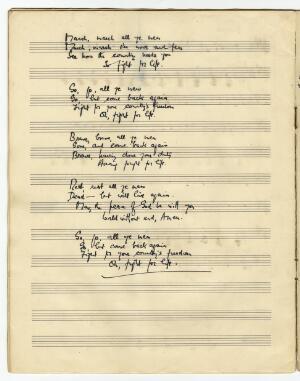 March, march all ye men
March, march the more and few
See how the country needs you
So fight for life.
Go, go, all ye men
Go, but come back again
Fight for your country's freedom
Oh, fight for life.
Brave, brave, all ye men
Gone, and come back again
Brave, having done your duty
Having fought for life.
Rest, rest all ye men
Dead — but will live again.
May the peace of God be with you
World without end, Amen.
Go, go, all ye men
Go but come back again
Fight for your country's freedom
Oh, fight for life.